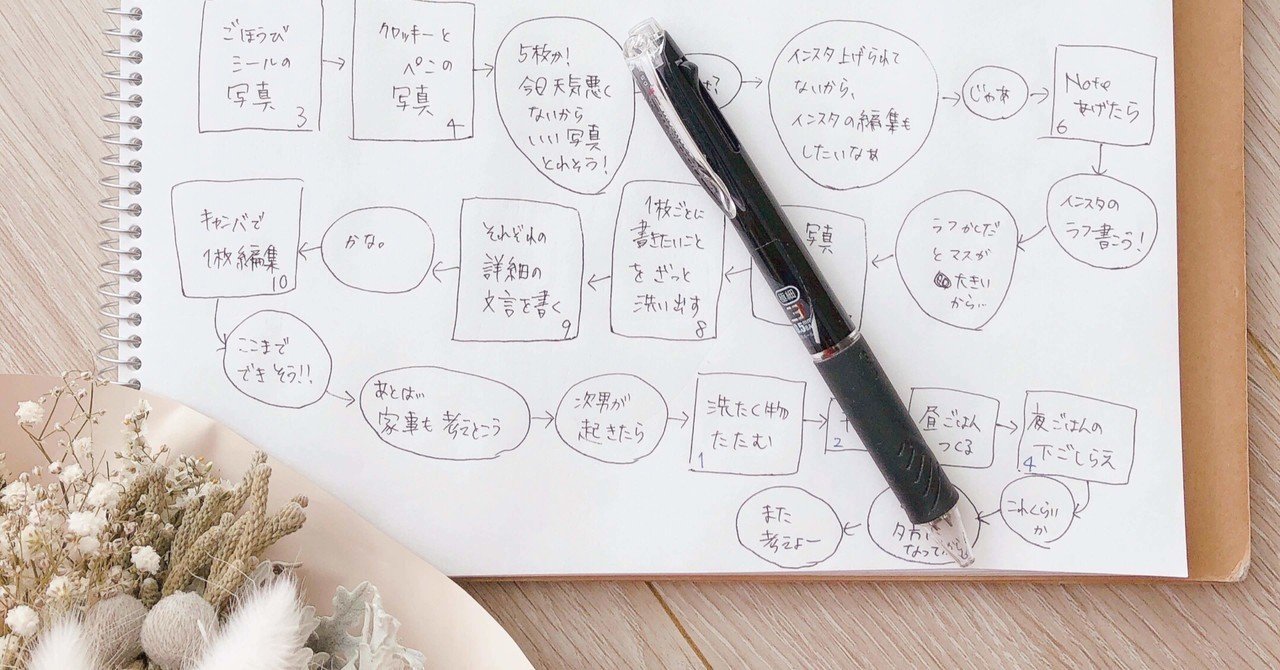 ごほうび
ミールの
写真
3
クロッキーと
ペンの
写真
4
5枚か!
今日天気悪く
ないから
いい写真
とれそう!
は?
インスタ上げられて
ないから、
インスタの編集も
したいなぁ
じゃあ
Note
あげたら
6
インスタの
ラフ書こう!
ラフかくだ
とマスが
大きい
から…
写真
1枚ごとに
書きたいこと
をざっと
洗い出す
8
それぞれの
詳細の
文言を書く
9
かな。
キャンバで
1枚編集
10
ここまで
できそう!!
あとは、
家事も考えとこう
次男が
起きたら
洗たく物
たたむ
1
2
昼ごはん
つくる
夜ごはんの
下ごしらえ
4
これくらい
か
夕方に
なって
また
考えよー